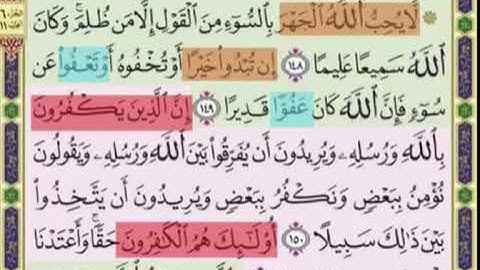 ۞ لَّا يُحِبُّ ٱللَّهُ ٱلْجَهْرَ بِٱلسُّوٓءِ مِنَ ٱلْقَوْلِ إِلَّا مَن ظُلِمَ ۚ وَكَانَ
ٱللَّهُ سَمِيعًا عَلِيمًا ١٤٨ إِن تُبْدُوا۟ خَيْرًا أَوْ تُخْفُوهُ أَوْ تَعْفُوا۟ عَن
سُوٓءٍ فَإِنَّ ٱللَّهَ كَانَ عَفُوًّا قَدِيرًا ١٤٩ إِنَّ ٱلَّذِينَ يَكْفُرُونَ
بِٱللَّهِ وَرُسُلِهِۦ وَيُرِيدُونَ أَن يُفَرِّقُوا۟ بَيْنَ ٱللَّهِ وَرُسُلِهِۦ وَيَقُولُونَ
نُؤْمِنُ بِبَعْضٍ وَنَكْفُرُ بِبَعْضٍ وَيُرِيدُونَ أَن يَتَّخِذُوا۟
بَيْنَ ذَٰلِكَ سَبِيلًا ١٥٠ أُو۟لَـٰٓئِكَ هُمُ ٱلْكَـٰفِرُونَ حَقًّا ۚ وَأَعْتَدْنَا